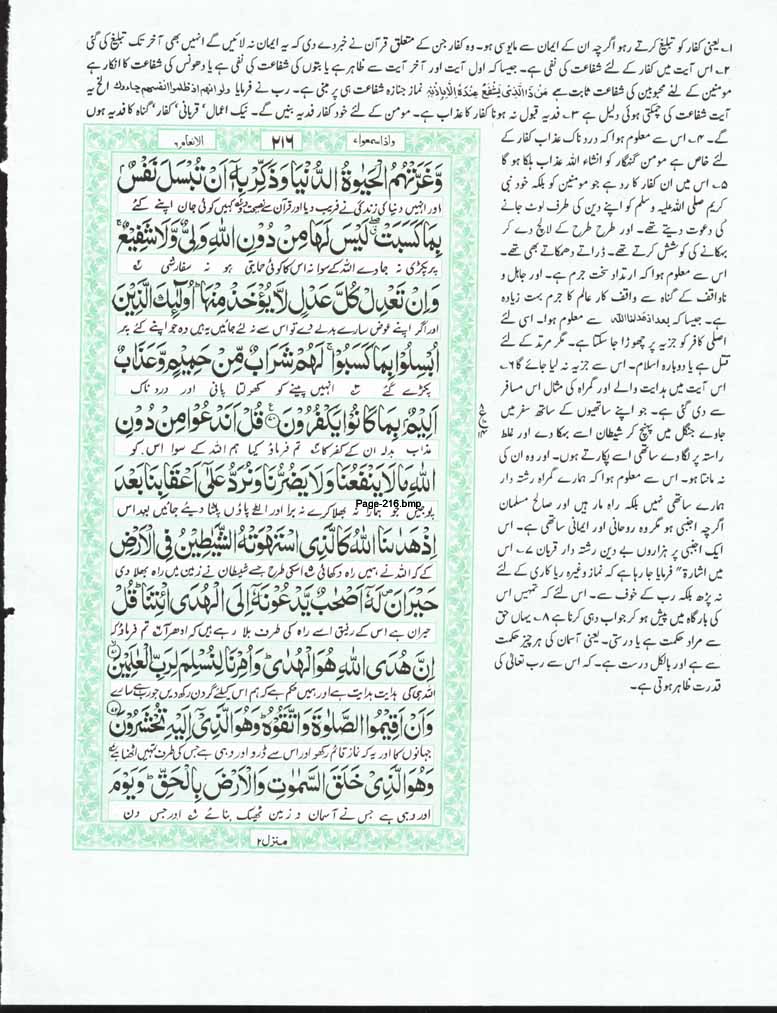 ۱۔ یعنی کفار کو تبلیغ کرتے رہو اگرچہ ان کے ایمان سے مایوسی ہو۔ وہ کفار جن کے متعلق قرآن نے خبر دے دی کہ یہ ایمان نہ لائیں گے انہیں بھی آخر تک تبلیغ کی گئی
۲۔ اس آیت میں کفار کے لئے شفاعت کی نفی ہے۔ جیسا کہ اول آیت اور آخر آیت سے ظاہر ہے یا بتوں کی شفاعت کی نفی ہے یا دھونس کی شفاعت کا انکار ہے
مومنین کے لئے محبوبین کی شفاعت ثابت ہے مَنْ ذَا الَّذِیْ یَشْفَعُ عِنْدَهٗۤ اِلَّا بِاِذْنِهٖ نماز جنازہ شفاعت ہی پر مبنی ہے۔ رب نے فرمایا ولو انهم اذ ظلموا انفسهم جاءوك الخ یہ
آیت شفاعت کی چمکتی ہوئی دلیل ہے ۳۔ فدیہ قبول نہ ہونا کفار کا عذاب ہے۔ مومن کے لئے خود کفار فدیہ بنیں گے۔ نیک اعمال، قربانی، کفار، گناہ کا فدیہ ہوں
گے۔ ۴۔ اس سے معلوم ہوا کہ دردناک عذاب کفار کے
لئے خاص ہے مومن گنہگار کو انشاء اللہ عذاب ہلکا ہو گا
۵۔ اس میں ان کفار کا رد ہے جو مومنین کو بلکہ خود نبی
کریم صلی اللہ علیہ وسلم کو اپنے دین کی طرف لوٹ جانے
کی دعوت دیتے تھے۔ اور طرح طرح کے لالچ دے کر
بہکانے کی کوشش کرتے تھے۔ ڈراتے دھمکاتے بھی تھے۔
اس سے معلوم ہوا کہ ارتداد سخت جرم ہے۔ اور جاہل و
ناواقف کے گناہ سے واقف کار عالم کا جرم بہت زیادہ
ہے۔ جیسا کہ بعد اذ هدٰنا اللہ سے معلوم ہوا۔ اسی لئے
اصلی کافر کو جزیہ پر چھوڑا جا سکتا ہے۔ مگر مرتد کے لئے
قتل ہے یا دوبارہ اسلام۔ اس سے جزیہ نہ لیا جائے گا ۶۔
اس آیت میں ہدایت والے اور گمراہ کی مثال اس مسافر
سے دی گئی ہے۔ جو اپنے ساتھیوں کے ساتھ سفر میں
جاوے جنگل میں پہنچ کر شیطان اسے بہکا دے اور غلط
راستہ پر لگا دے ساتھی اسے پکارتے ہوں۔ اور وہ ان کی
نہ مانتا ہو۔ اس سے معلوم ہوا کہ ہمارے گمراہ رشتہ دار
ہمارے ساتھی نہیں بلکہ راہ مار ہیں اور صالح مسلمان
اگرچہ اجنبی ہو مگر وہ روحانی اور ایمانی ساتھی ہے۔ اس
ایک اجنبی پر ہزاروں بے دین رشتہ دار قربان ۷۔ اس
میں اشارۃً فرمایا جا رہا ہے کہ نماز وغیرہ ریا کاری کے لئے
نہ پڑھ بلکہ رب کے خوف سے۔ اس لئے کہ تمہیں اس
کی بارگاہ میں پیش ہو کر جواب دہی کرنا ہے ۸۔ یہاں حق
سے مراد حکمت ہے یا درستی۔ یعنی آسمان کی ہر چیز حکمت
سے ہے اور بالکل درست ہے۔ کہ اس سے رب تعالیٰ کی
قدرت ظاہر ہوتی ہے۔
واذاسمعوا ۷ ۲۱۶ الانعام ۶
وَّغَرَّتْهُمُ الْحَیٰوةُ الدُّنْیَا وَذَكِّرْ بِهٖۤ اَنْ تُبْسَلَ نَفْسٌۢ
اور انہیں دنیا کی زندگی نے فریب دیا اور قرآن سے نصیحت دو کہیں کوئی جان اپنے کئے
بِمَا كَسَبَتْ لَیْسَ لَهَا مِنْ دُوْنِ اللّٰهِ وَلِیٌّ وَّلَا شَفِیْعٌ
پر پکڑی نہ جائے اللہ کے سوا نہ اس کا کوئی حمایتی ہو نہ سفارشی
وَاِنْ تَعْدِلْ كُلَّ عَدْلٍ لَّا یُؤْخَذْ مِنْهَا اُولٰٓئِكَ الَّذِیْنَ
اور اگر اپنے عوض سارے بدلے دے تو اس سے نہ لئے جائیں یہ ہیں وہ جو اپنے کئے پر
اُبْسِلُوْا بِمَا كَسَبُوْا لَهُمْ شَرَابٌ مِّنْ حَمِیْمٍ وَّعَذَابٌ
پکڑے گئے انہیں پینے کو کھولتا پانی اور دردناک
اَلِیْمٌۢ بِمَا كَانُوْا یَكْفُرُوْنَ ۷۰ قُلْ اَنَدْعُوْا مِنْ دُوْنِ
عذاب بدلہ ان کے کفر کا تم فرماؤ کیا ہم اللہ کے سوا اس کو
اللّٰهِ مَا لَا یَنْفَعُنَا وَلَا یَضُرُّنَا وَنُرَدُّ عَلٰۤی اَعْقَابِنَا بَعْدَ
پوجیں جو ہمارا نہ بھلا کرے نہ برا اور الٹے پاؤں پلٹا دیئے جائیں بعد اس
Page-216.bmp
اِذْ هَدٰىنَا اللّٰهُ كَالَّذِی اسْتَهْوَتْهُ الشَّیٰطِیْنُ فِی الْاَرْضِ
کے کہ اللہ نے ہمیں راہ دکھائی اس کی طرح جسے شیطان نے زمین میں راہ بھلا دی
حَیْرَانَ لَهٗۤ اَصْحٰبٌ یَّدْعُوْنَهٗۤ اِلَی الْهُدَی ائْتِنَا قُلْ
حیران ہے اس کے رفیق اسے راہ کی طرف بلا رہے ہیں کہ ادھر آ تم فرماؤ کہ
اِنَّ هُدَی اللّٰهِ هُوَ الْهُدٰی وَاُمِرْنَا لِنُسْلِمَ لِرَبِّ الْعٰلَمِیْنَ
اللہ ہی کی ہدایت ہدایت ہے اور ہمیں حکم ہے کہ ہم اس کیلئے گردن رکھ دیں جو رب ہے سارے
وَاَنْ اَقِیْمُوا الصَّلٰوةَ وَاتَّقُوْهُ وَهُوَ الَّذِیْۤ اِلَیْهِ تُحْشَرُوْنَ
جہانوں کا اور یہ کہ نماز قائم رکھو اور اس سے ڈرو اور وہی ہے جس کی طرف تمہیں اٹھنا ہے
وَهُوَ الَّذِیْ خَلَقَ السَّمٰوٰتِ وَالْاَرْضَ بِالْحَقِّ وَیَوْمَ
اور وہی ہے جس نے آسمان و زمین ٹھیک بنائے اور جس دن
منزل ۲